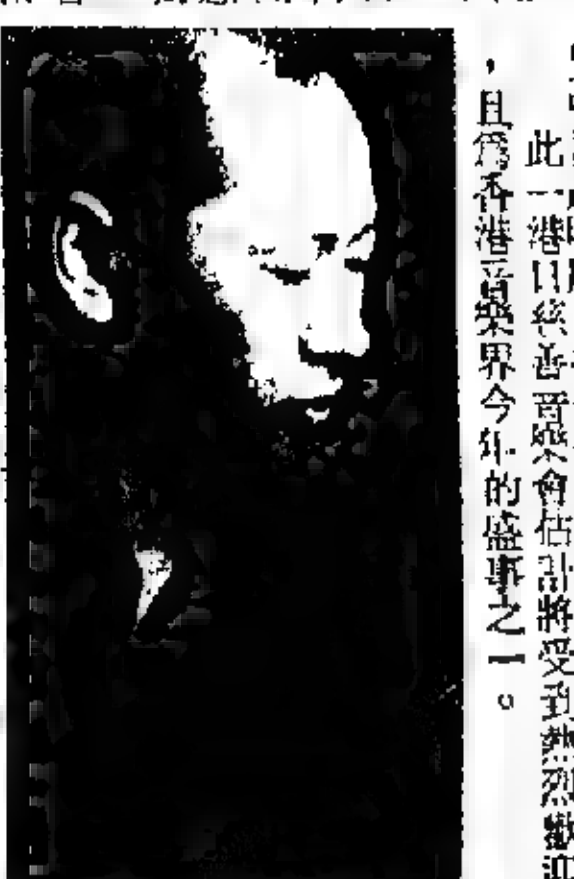 此一港日慈善音樂會估計將受到熱烈歡迎
，且為香港音樂界今年的盛事之一。